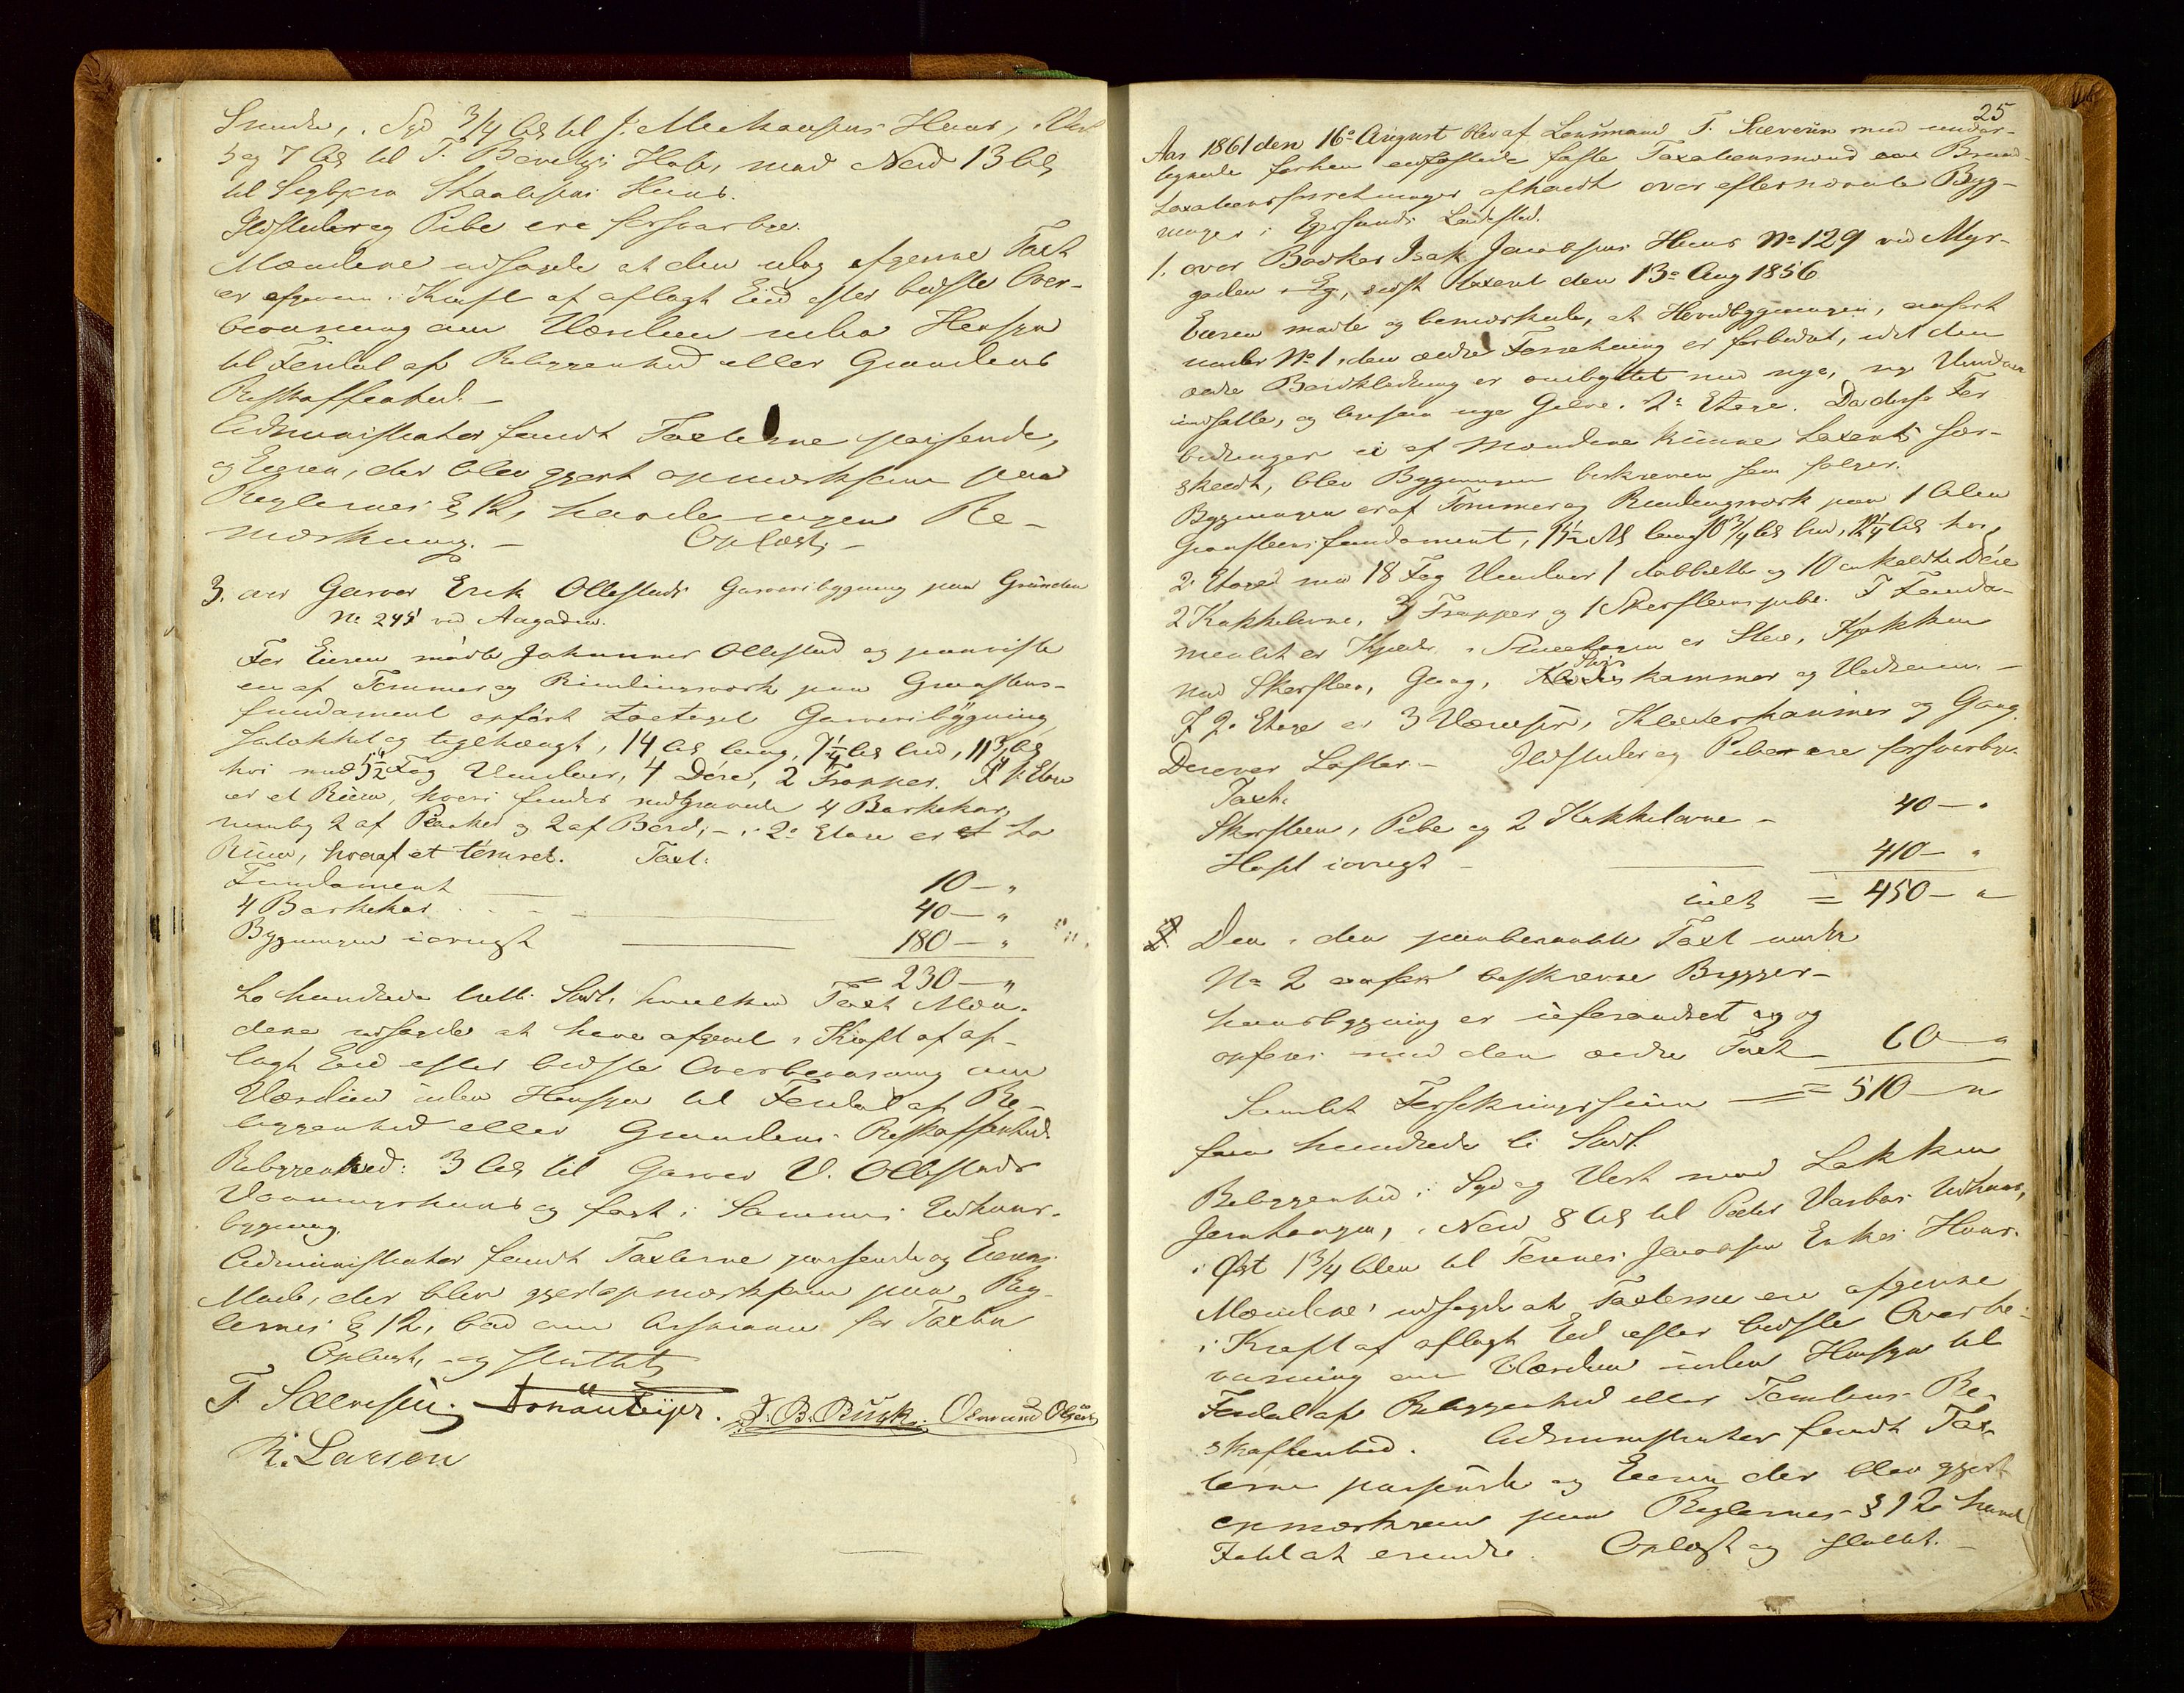 Grunden, i Syd 3/4 Al til J. Mickaelsens Huus, i Vest
5 og 7 Al til T. Hobe, mod Nord 13 Al
til Sigbjørn Staalesens Huus.
Ildsteder og Pibe ere forsvarlige.
Mændene udsagde at den idag afgivne Taxt
er afgiven i Kraft af aflagt Eed efter bedste Over-
beviisning om Værdien uden Hensyn
til Fordel af Beliggenhed eller Grundens
Beskaffenhed. -
Administrator fandt Taxterne passende,
og Eieren, der blev gjort opmærksom paa
Reglernes § 12, havde ingen Be-
mærkning. - Oplæst, -
3. over Garver Erik Ollestads Garveribygning paa Grunden
No 245 ved Aagaden.
For Eieren mødte Johannes Ollestad og paaviste
en af Tømmer og Bindingsværk paa Graasteens-
fundament opført toetages Garveribygning
og teglhængt, 14 Al lang, 7 1/4 Al bred, 11 3/4 Al
høi med 5 1/2 Fag Vinduer, 4 Døre, 2 Trapper. I 1. Etage
er et Rum, hvori findes nedgravede 4 Barkekar,
nemlig 2 af Planker og 2 af Bord, - i 2. Etage er to
Rum, hvoraf et tømret. Taxt:
Fundament 10 - "
4 Barkekar 40 - "
Bygningen iøvrigt 180 - "
= 230 - "
to hundrede tretti Spdl. hvilken Taxt Mæn-
dene udsagde at have afgivet i Kraft af af-
lagt Eed efter bedste Overbeviisning om
Værdien uden Hensyn til Fordel af Be-
liggenhed eller Grundens Beskaffenhed.
Beliggenhed: 3 Al til Garver V. Ollestads
Vaaningshuus og fast i Sammes Udhuus-
bygning.
Administrator fandt Taxterne passende og Eierens
Mand, der blev gjort opmærksom paa Reg-
lernes § 12, bad om for Taxten
Oplæst, og sluttet,
T. Sæveruin. J. B. Busk. Osmund
R. Larsen
25
Aar 1861 den 16de August blev af Lensmand T. Sæveruin med under-
tegnede forhen eedfæstede faste Taxationsmænd Brand-
taxationsforretninger afholdt over efternævnte Byg-
ninger i Egersunds Ladested.
1. over Bødker Isak Jacobsens Huus No 129 ved Myr-
gaden, sidst taxeret den 13de Aug 1856
Eieren mødte og bemærkede, at Hovedbygningen, anført
under No 1 i den ældre Forretning er forbedret, idet den
ældre Bordklædning er ombyttet med nye, nye Vinduer
indsatte, og ligesaa nye Gulve i 2. Etage. Da disse For
bedringer ei af Mændene kunne taxeres sær-
skildt, blev Bygningen beskreven som følger.
Bygningen er af Tømmer og Bindingsværk paa 1 Alen
Graasteensfundament, 15 1/2 Al lang 10 3/4 Al bred, 12 1/4 Al høi,
2. Etager med 18 Fag Vinduer 1 dobbelt og 10 enkelte Døre
2 Kakkelovne, 3 Trapper og 1 Skorsteenspibe. I Funda-
mentet er Kjelder. i Stueetagen er Stue, Kjøkken
med Skorsteen, Gang, Spiskammer og Vedrum. -
I 2. Etage er 3 Værelser, Klædekammer og Gang.
Derover Lofter. - Ildsteder og Piber ere forsvarlige
Taxt.
Skorsteen, Pibe og 2 Kakkelovne - 40 - "
Huset iøvrigt - 410 - "
ialt = 450 - "
2. Den i den paaberaabte Taxt under
No 2 anført beskrevne Brygger-
huusbygning er uforandret og
opføres med den ældre Taxt 60 "
Samlet Forsikringssum = 510 - "
fem hundrede ti Spdl.
Beliggenhed i Syd og Vest mod Løkken
Jernhagen, i Nord 8 Al til Peder Varbos Udhuus,
i Øst 1 3/4 Alen til Tønnes Jacobsen Enkes Huus.
Mændene udsagde at Taxterne ere afgivne
i Kraft af aflagt Eed efter bedste Overbe-
viisning om Værdien uden Hensyn til
Fordel af Beliggenhed eller Tomtens Be-
skaffenhed. Administrator fandt Tax-
terne passende og Eieren der blev gjort
opmærksom paa Reglernes § 12 havde
Intet at erindre. Oplæst og sluttet. -